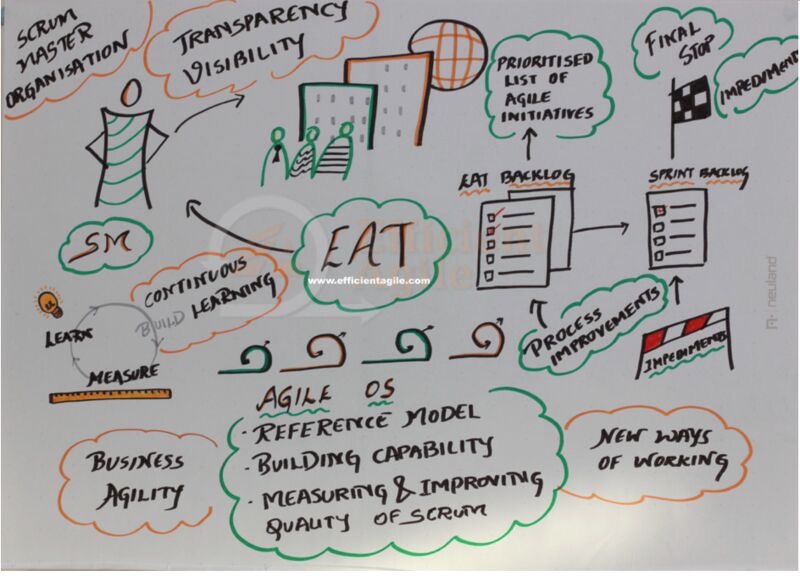 SCRUM
MASTER
ORGANISATION
TRANSPARENCY
VISIBILITY
PRIORITISED
LIST OF
AGILE
INITIATIVES
FINAL
STOP
IMPEDIMENT
SM
EAT
www.efficientagile.com
EAT BACKLOG
SPRINT BACKLOG
CONTINUOUS
LEARNING
LEARN
BUILD
MEASURE
PROCESS
IMPROVEMENTS
IMPEDIMENTS
neuland
AGILE OS
· REFERENCE MODEL
· BUILDING CAPABILITY
· MEASURING & IMPROVING
QUALITY OF SCRUM
BUSINESS
AGILITY
NEW WAYS
OF WORKING